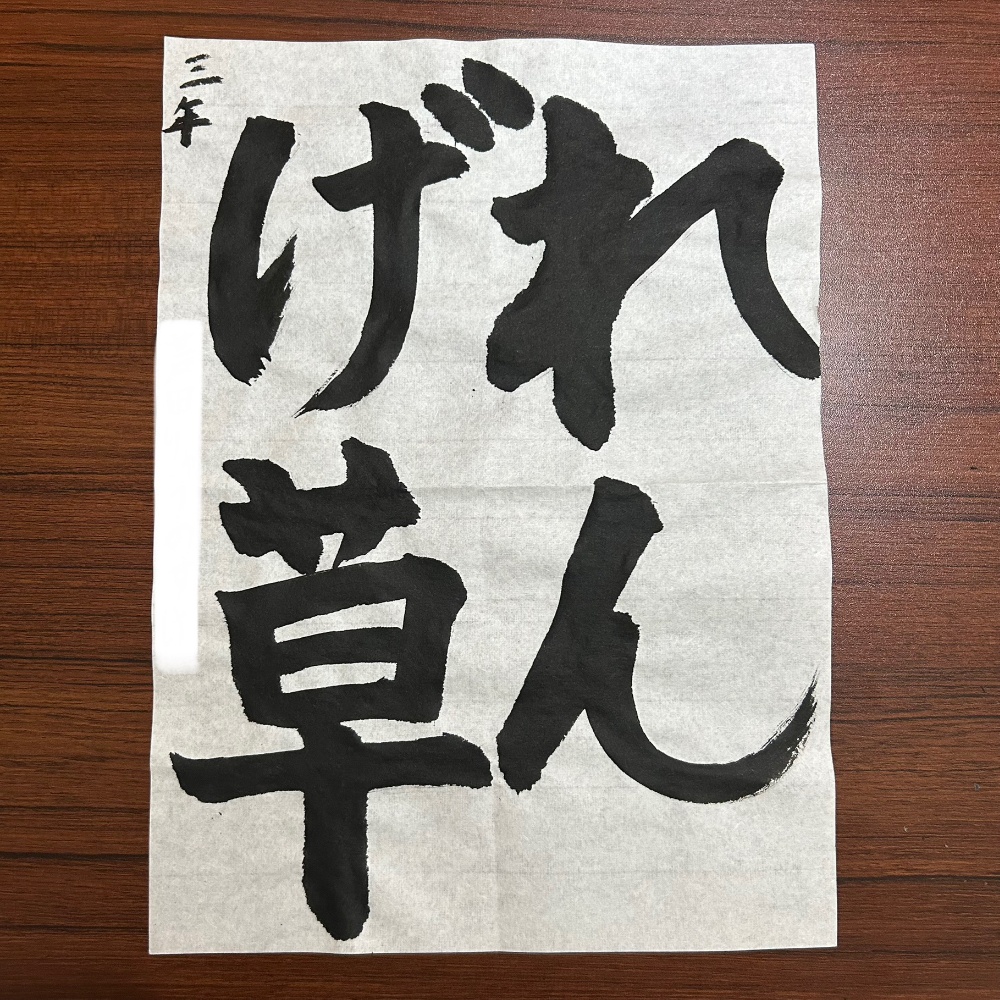 れん
げ草
三年